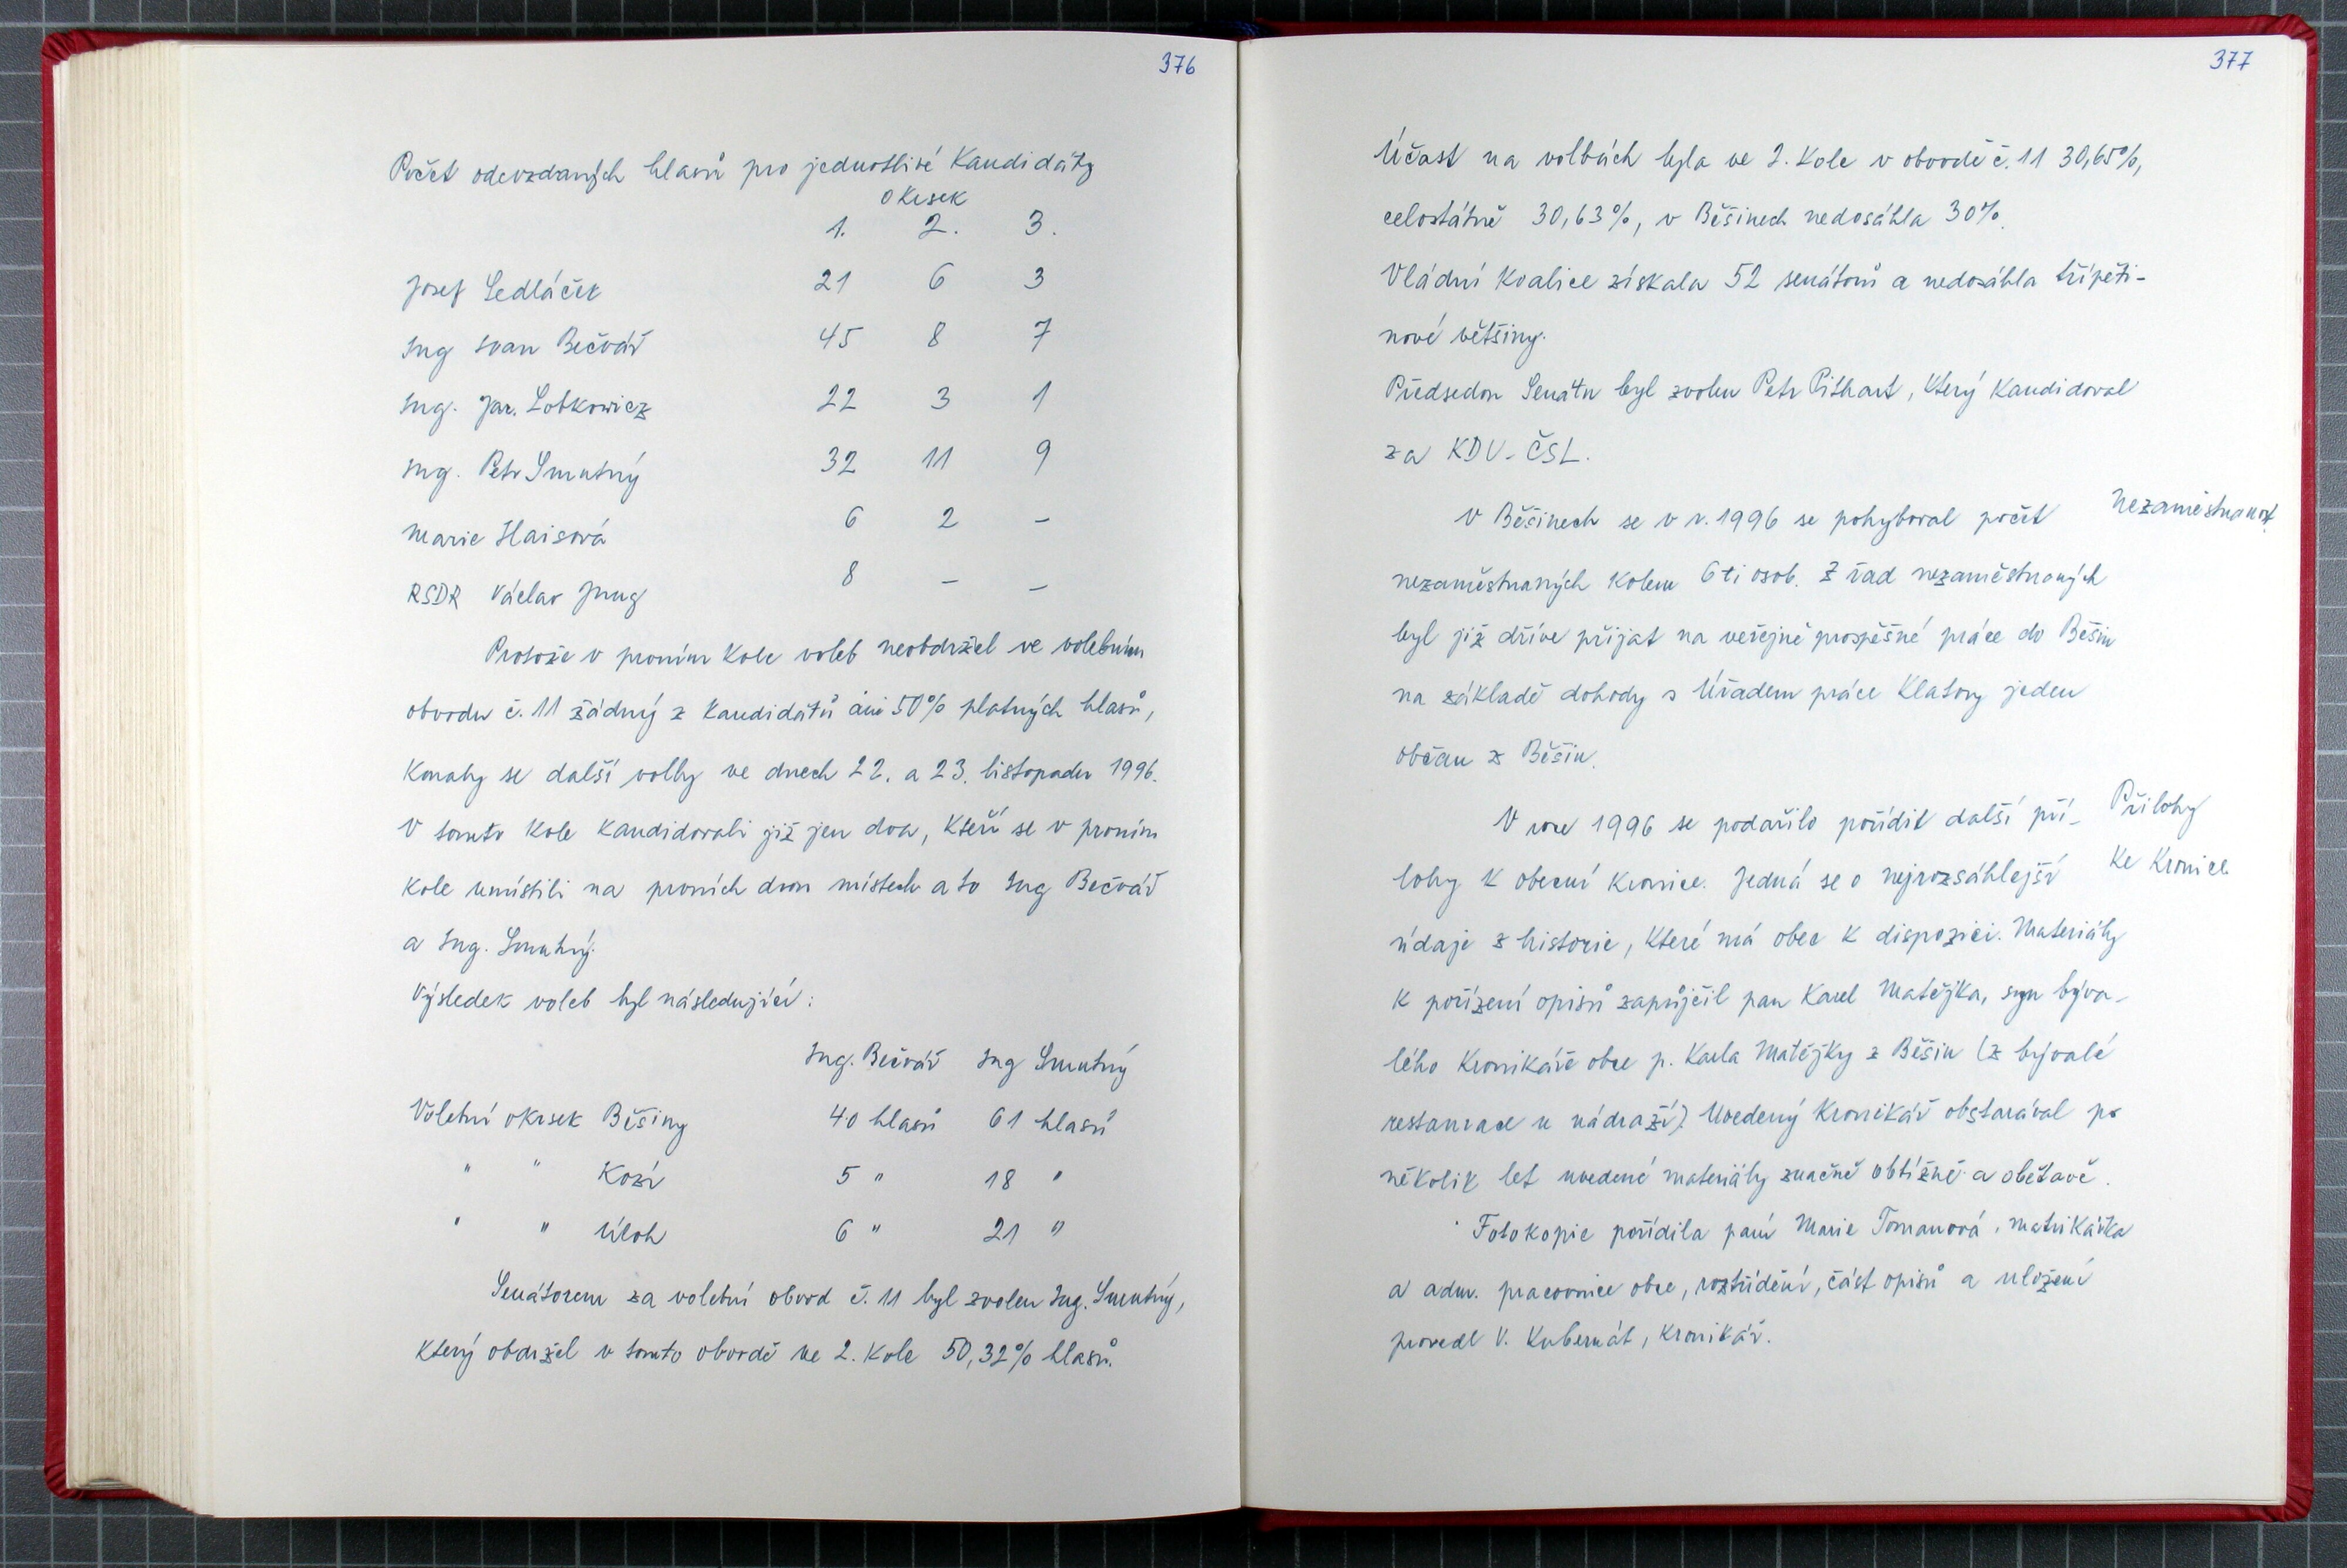 376
Počet odevzdaných hlasů pro jednotlivé kandidáty
okrsek
1. 2. 3.
Josef Sedláček 21 6 3
Ing Ivan Bečvář 45 8 7
Ing. Jar. Lobkowicz 22 3 1
Ing. Petr Smutný 32 11 9
Marie Haisová 6 2 –
RSDR Václav Jung 8 – –
Protože v prvním kole voleb neobdržel ve volebním
obvodu č. 11 žádný z kandidátů ani 50% platných hlasů,
konaly se další volby ve dnech 22. a 23. listopadu 1996.
V tomto kole kandidovali již jen dva, kteří se v prvním
kole umístili na prvních dvou místech a to Ing Bečvář
a Ing. Smutný.
Výsledek voleb byl následující:
Ing. Bečvář Ing Smutný
Volební okrsek Běšiny 40 hlasů 61 hlasů
" " Kozí 5 " 18 "
" " Úloh 6 " 21 "
Senátorem za volební obvod č. 11 byl zvolen Ing. Smutný,
který obdržel v tomto obvodě ve 2. kole 50,32% hlasů.
377
Účast na volbách byla ve 2. kole v obvodě č. 11 30,65%,
celostátně 30,63%, v Běšinech nedosáhla 30%.
Vládní koalice získala 52 senátorů a nedosáhla třípěti-
nové většiny.
Předsedou Senátu byl zvolen Petr Pithart, který kandidoval
za KDU-ČSL.
V Běšinech se v r. 1996 se pohyboval počet Nezaměstnanost
nezaměstnaných kolem 6ti osob. Z řad nezaměstnaných
byl již dříve přijat na veřejně prospěšné práce do Běšin
na základě dohody s Úřadem práce Klatovy jeden
občan z Běšin.
V roce 1996 se podařilo pořídit další pří- Přílohy
lohy k obecní kronice. Jedná se o nejrozsáhlejší ke kronice
údaje z historie, které má obec k dispozici. Materiály
k pořízení opisů zapůjčil pan Karel Matějka, syn býva-
lého kronikáře obce p. Karla Matějky z Běšin (z bývalé
restaurace u nádraží). Uvedený kronikář obstarával po
několik let uvedené materiály značně obtížně a obětavě.
Fotokopie pořídila paní Marie Tomanová, matrikářka
a adm. pracovnice obce, roztřídění, část opisů a uložení
provedl V. Kubernát, kronikář.